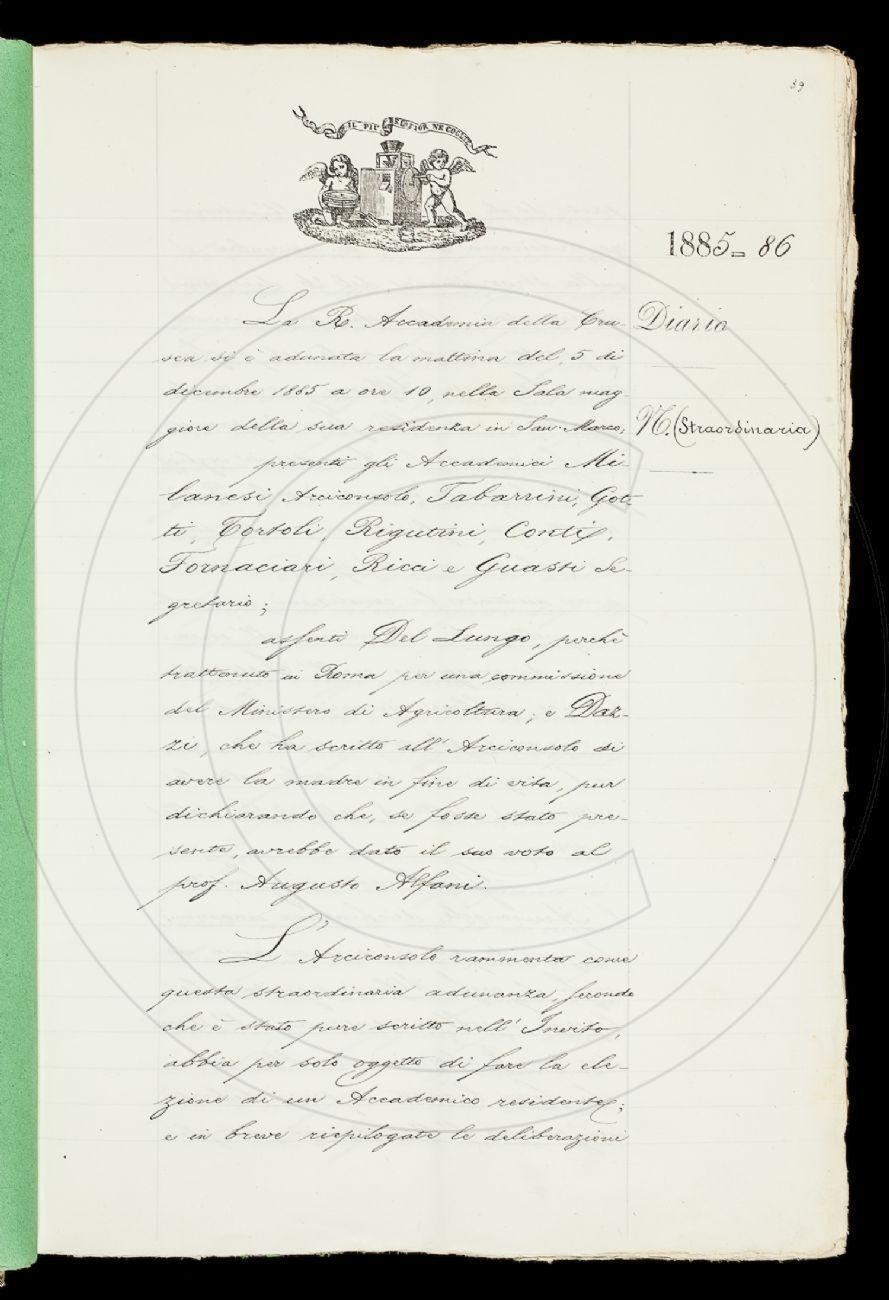 39
IL PIÙ BEL FIOR NE COGLIE
1885-86
La R. Accademia della Cru-
sca si è adunata la mattina del 5 di
dicembre 1885 a ore 10, nella Sala mag-
giore della sua residenza in San Marco;
presenti gli Accademici Mi-
lanesi Arciconsolo, Tabarrini, Got-
ti, Tortoli, Rigutini, Conti,
Fornaciari, Ricci e Guasti Se-
gretario;
assenti Del Lungo, perchè
trattenuto in Roma per una commissione
del Ministero di Agricoltura; e Daz-
zi, che ha scritto all'Arciconsolo di
avere la madre in fine di vita, pur
dichiarando che, se fosse stato pre-
sente, avrebbe dato il suo voto al
prof. Augusto Alfani.
L'Arciconsolo rammenta come
questa straordinaria adunanza, secondo
che è stato pure scritto nell'Invito,
abbia per solo oggetto di fare la ele-
zione di un Accademico residente;
e in breve riepilogate le deliberazioni
Diario
N. (Straordinaria)